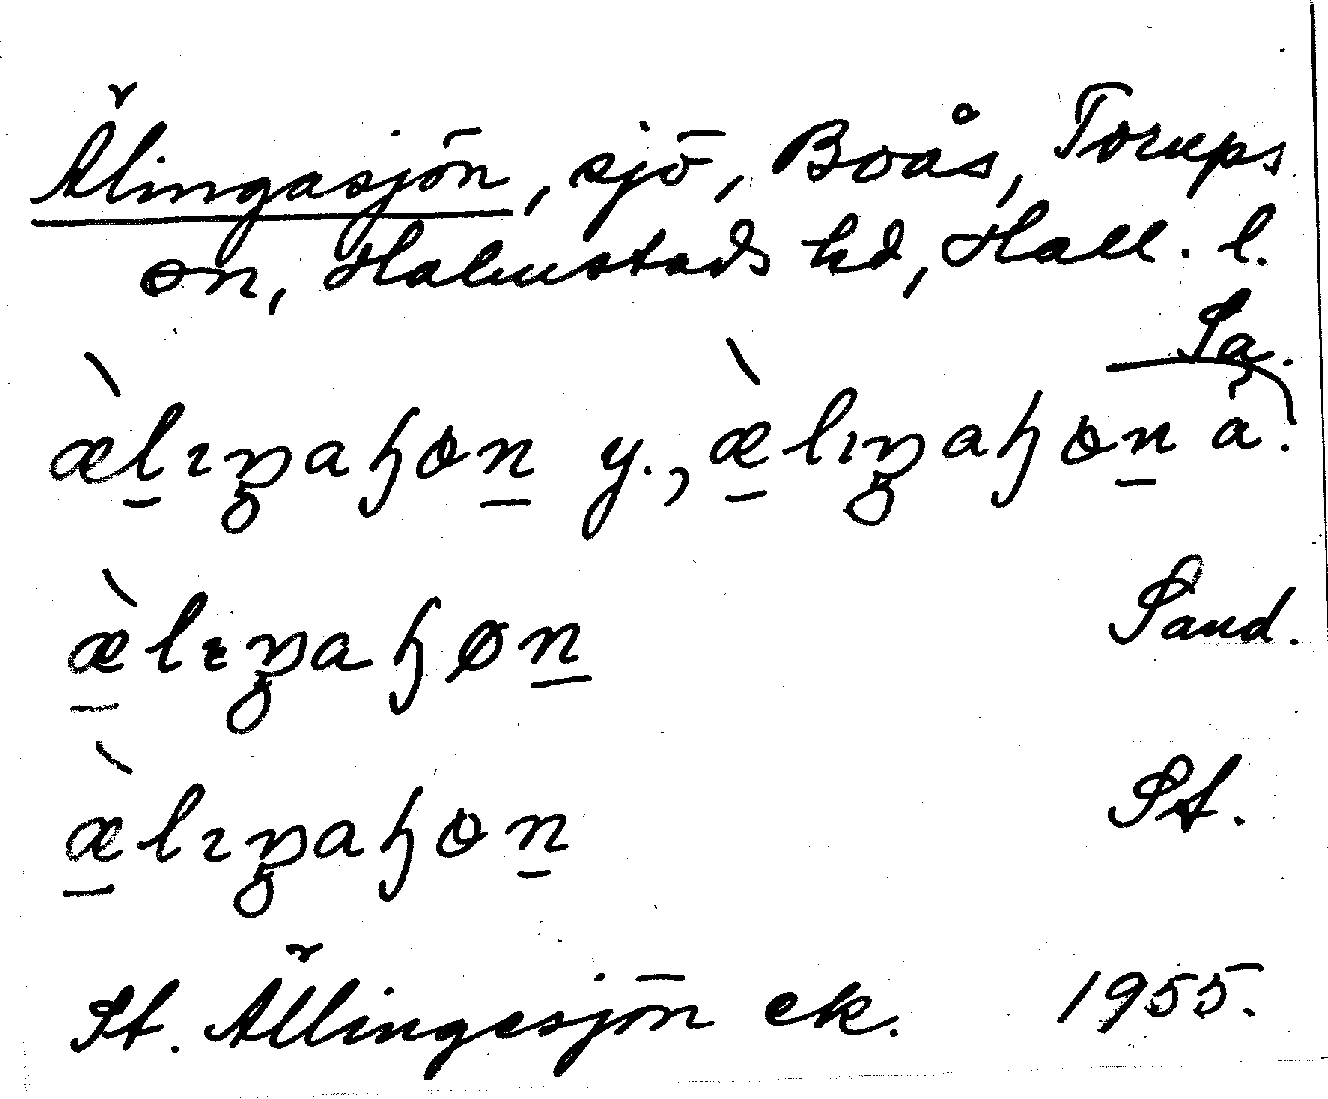 Älingasjön, sjö, Boås, Torups
sn, Halmstads hd, Hall. l.
Sa.
æ̀lɪŋaɧɵn y., æ̀lɪŋaɧɵn ä.
æ̀lɪŋaɧøn Sand.
æ̀lɪŋaɧɵn St.
St. Ällingesjön ek. 1955.